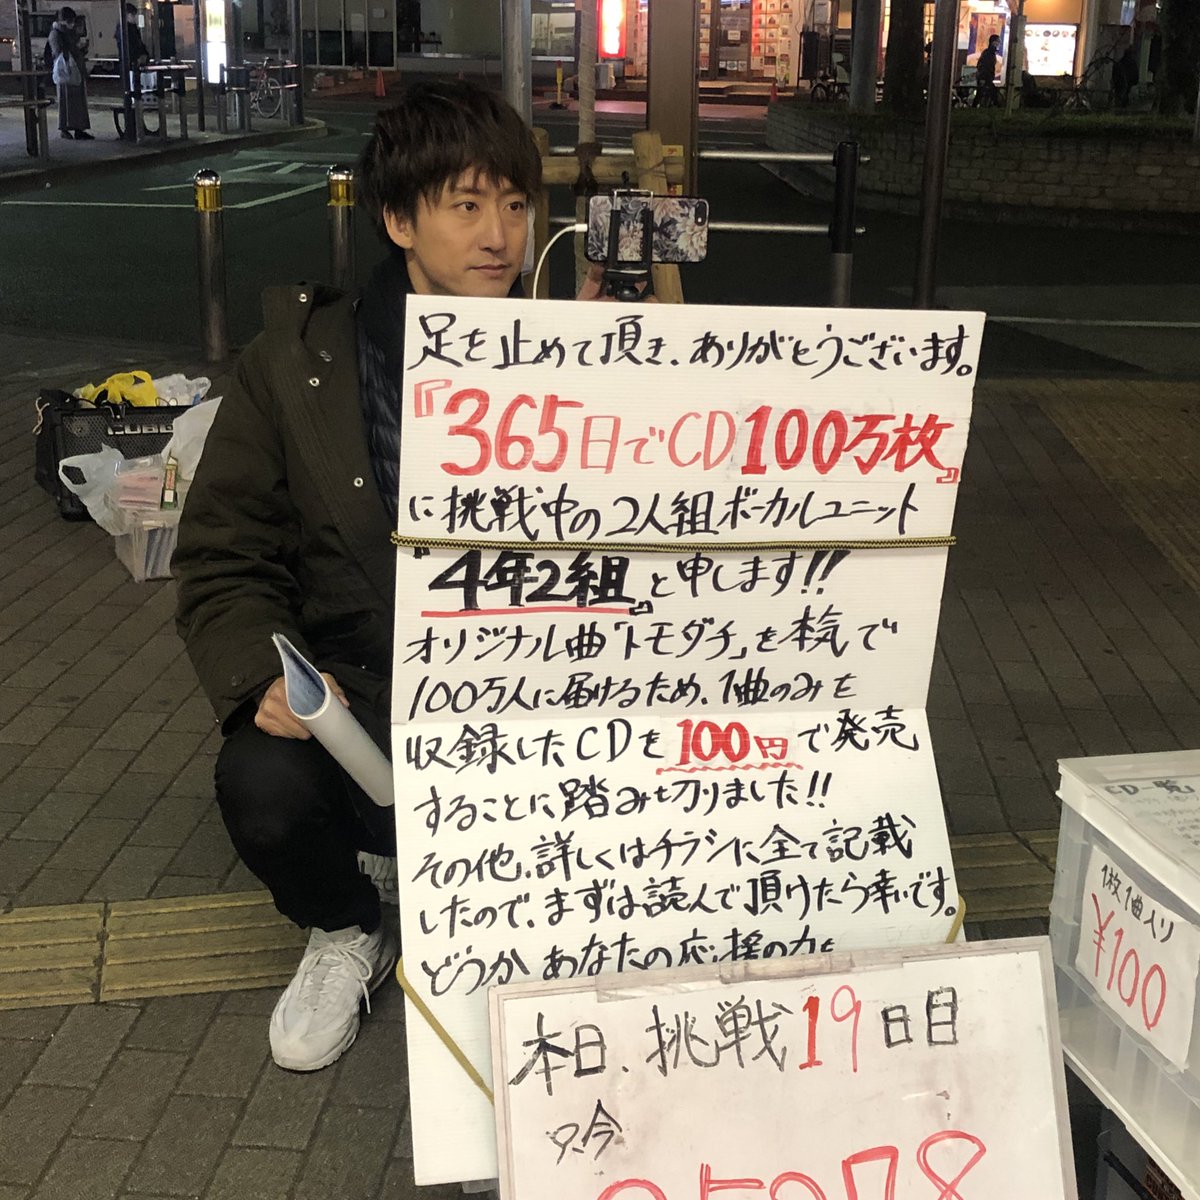 足を止めて頂き、ありがとうございます。
『365日でCD100万枚』
に挑戦中の2人組ボーカルユニット
『4年2組』と申します!!
オリジナル曲「トモダチ」を本気で
100万人に届けるため、1曲のみを
収録したCDを100円で発売
することに踏み切りました!!
その他、詳しくはチラシに全て記載
したので、まずは読んで頂けたら幸いです。
どうかあなたの応援の力を
本日、挑戦19日目
只今
CD一覧
1枚1曲入り
¥100
CUBE